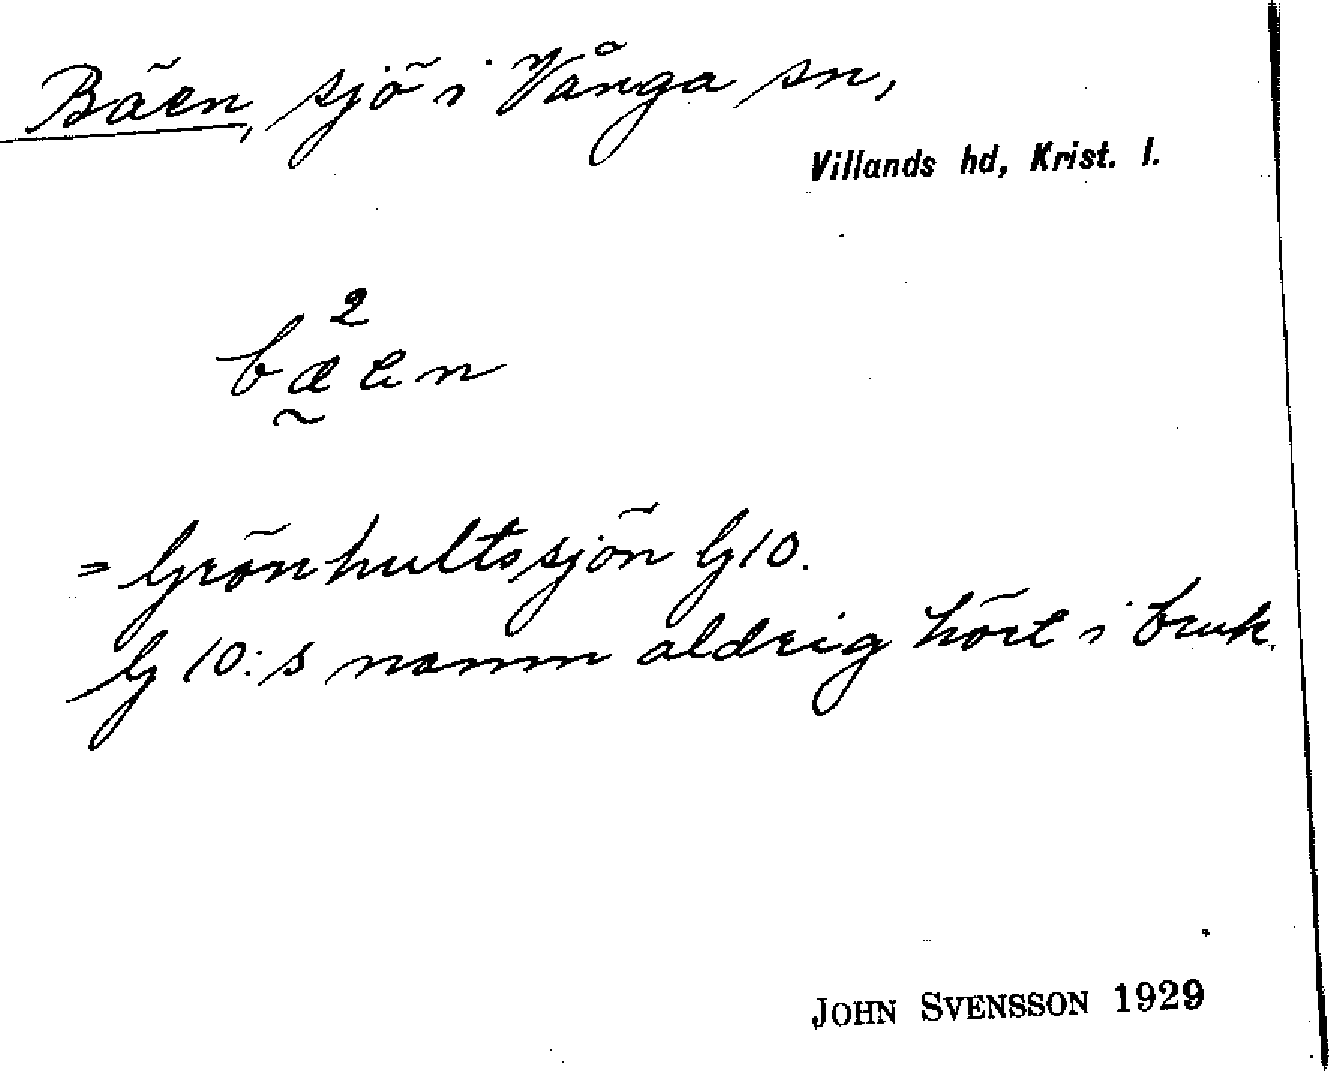 Bäen, sjö i Vånga sn,
Villands hd, Krist. l.
2
bæen
= Grönhultssjön G10.
G10:s namn aldrig hört i bruk.
JOHN SVENSSON 1929